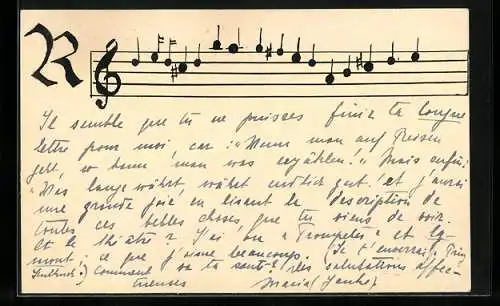 R
Il semble que tu ne puisses finir ta longue
lettre pour moi, car: "Wenn man auf Reisen
geht, so kann man was erzählen." Mais enfin:
"Was lange währt, währet endlich gut." et j'aurai
une grande joie en lisant la description de
toutes ces belles choses, que tu viens de voir.
Et le théâtre? J'ai vu "Trompeter" et Eg-
mont; ce que j'aime beaucoup. (Je t'enverrai
Comment va ta santé? Mes salutations affec-
tueuses Maria